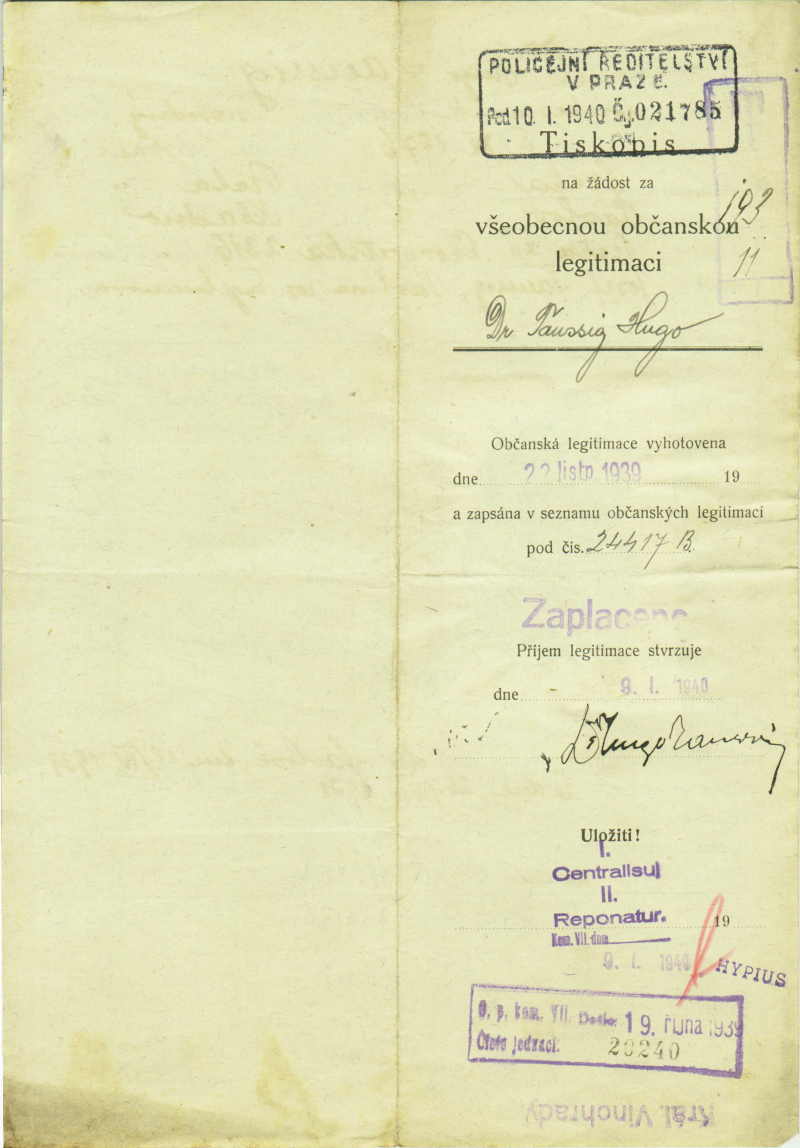 POLICEJNÍ ŘEDITELSTVÍ
V PRAZE.
Pod 10. I. 1940 Čj. 021785
Tiskopis
na žádost za
193
všeobecnou občanskou
legitimaci
11
Dr Taussig Hugo
Občanská legitimace vyhotovena
dne 22 listp 1939 19
a zapsána v seznamu občanských legitimací
pod čís. 24417 B.
Zaplaceno
Příjem legitimace stvrzuje
dne 9. I. 1940
Dr Hugo Taussig
Uložiti!
I.
Centralisuj
II.
Reponatur.
19
Kom. VII. dne
9. I. 1940
HYPIUS
O. p. kom. VII. Došlo: 19. října 1939
Číslo jednací. 20240
Král. Vinohrady